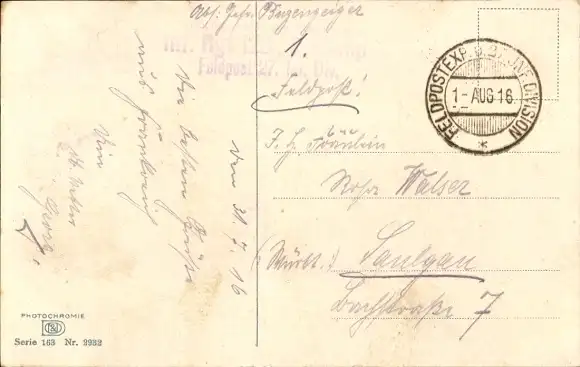 Abs: Gefr. Buzengeiger
1.
Feldpost 27. Inf. Div.
"Feldpost"
FELDPOSTEXP. D. 27. INF. DIVISION
1- AUG 16
*
Fräulein
Rosa Walser
(Württ.) Saulgau
Bachstraße 7
den 31.7.16
Die besten Grüße
aus Frankreich
Dein
Georg
PHOTOCHROMIE
Serie 163 Nr. 2932